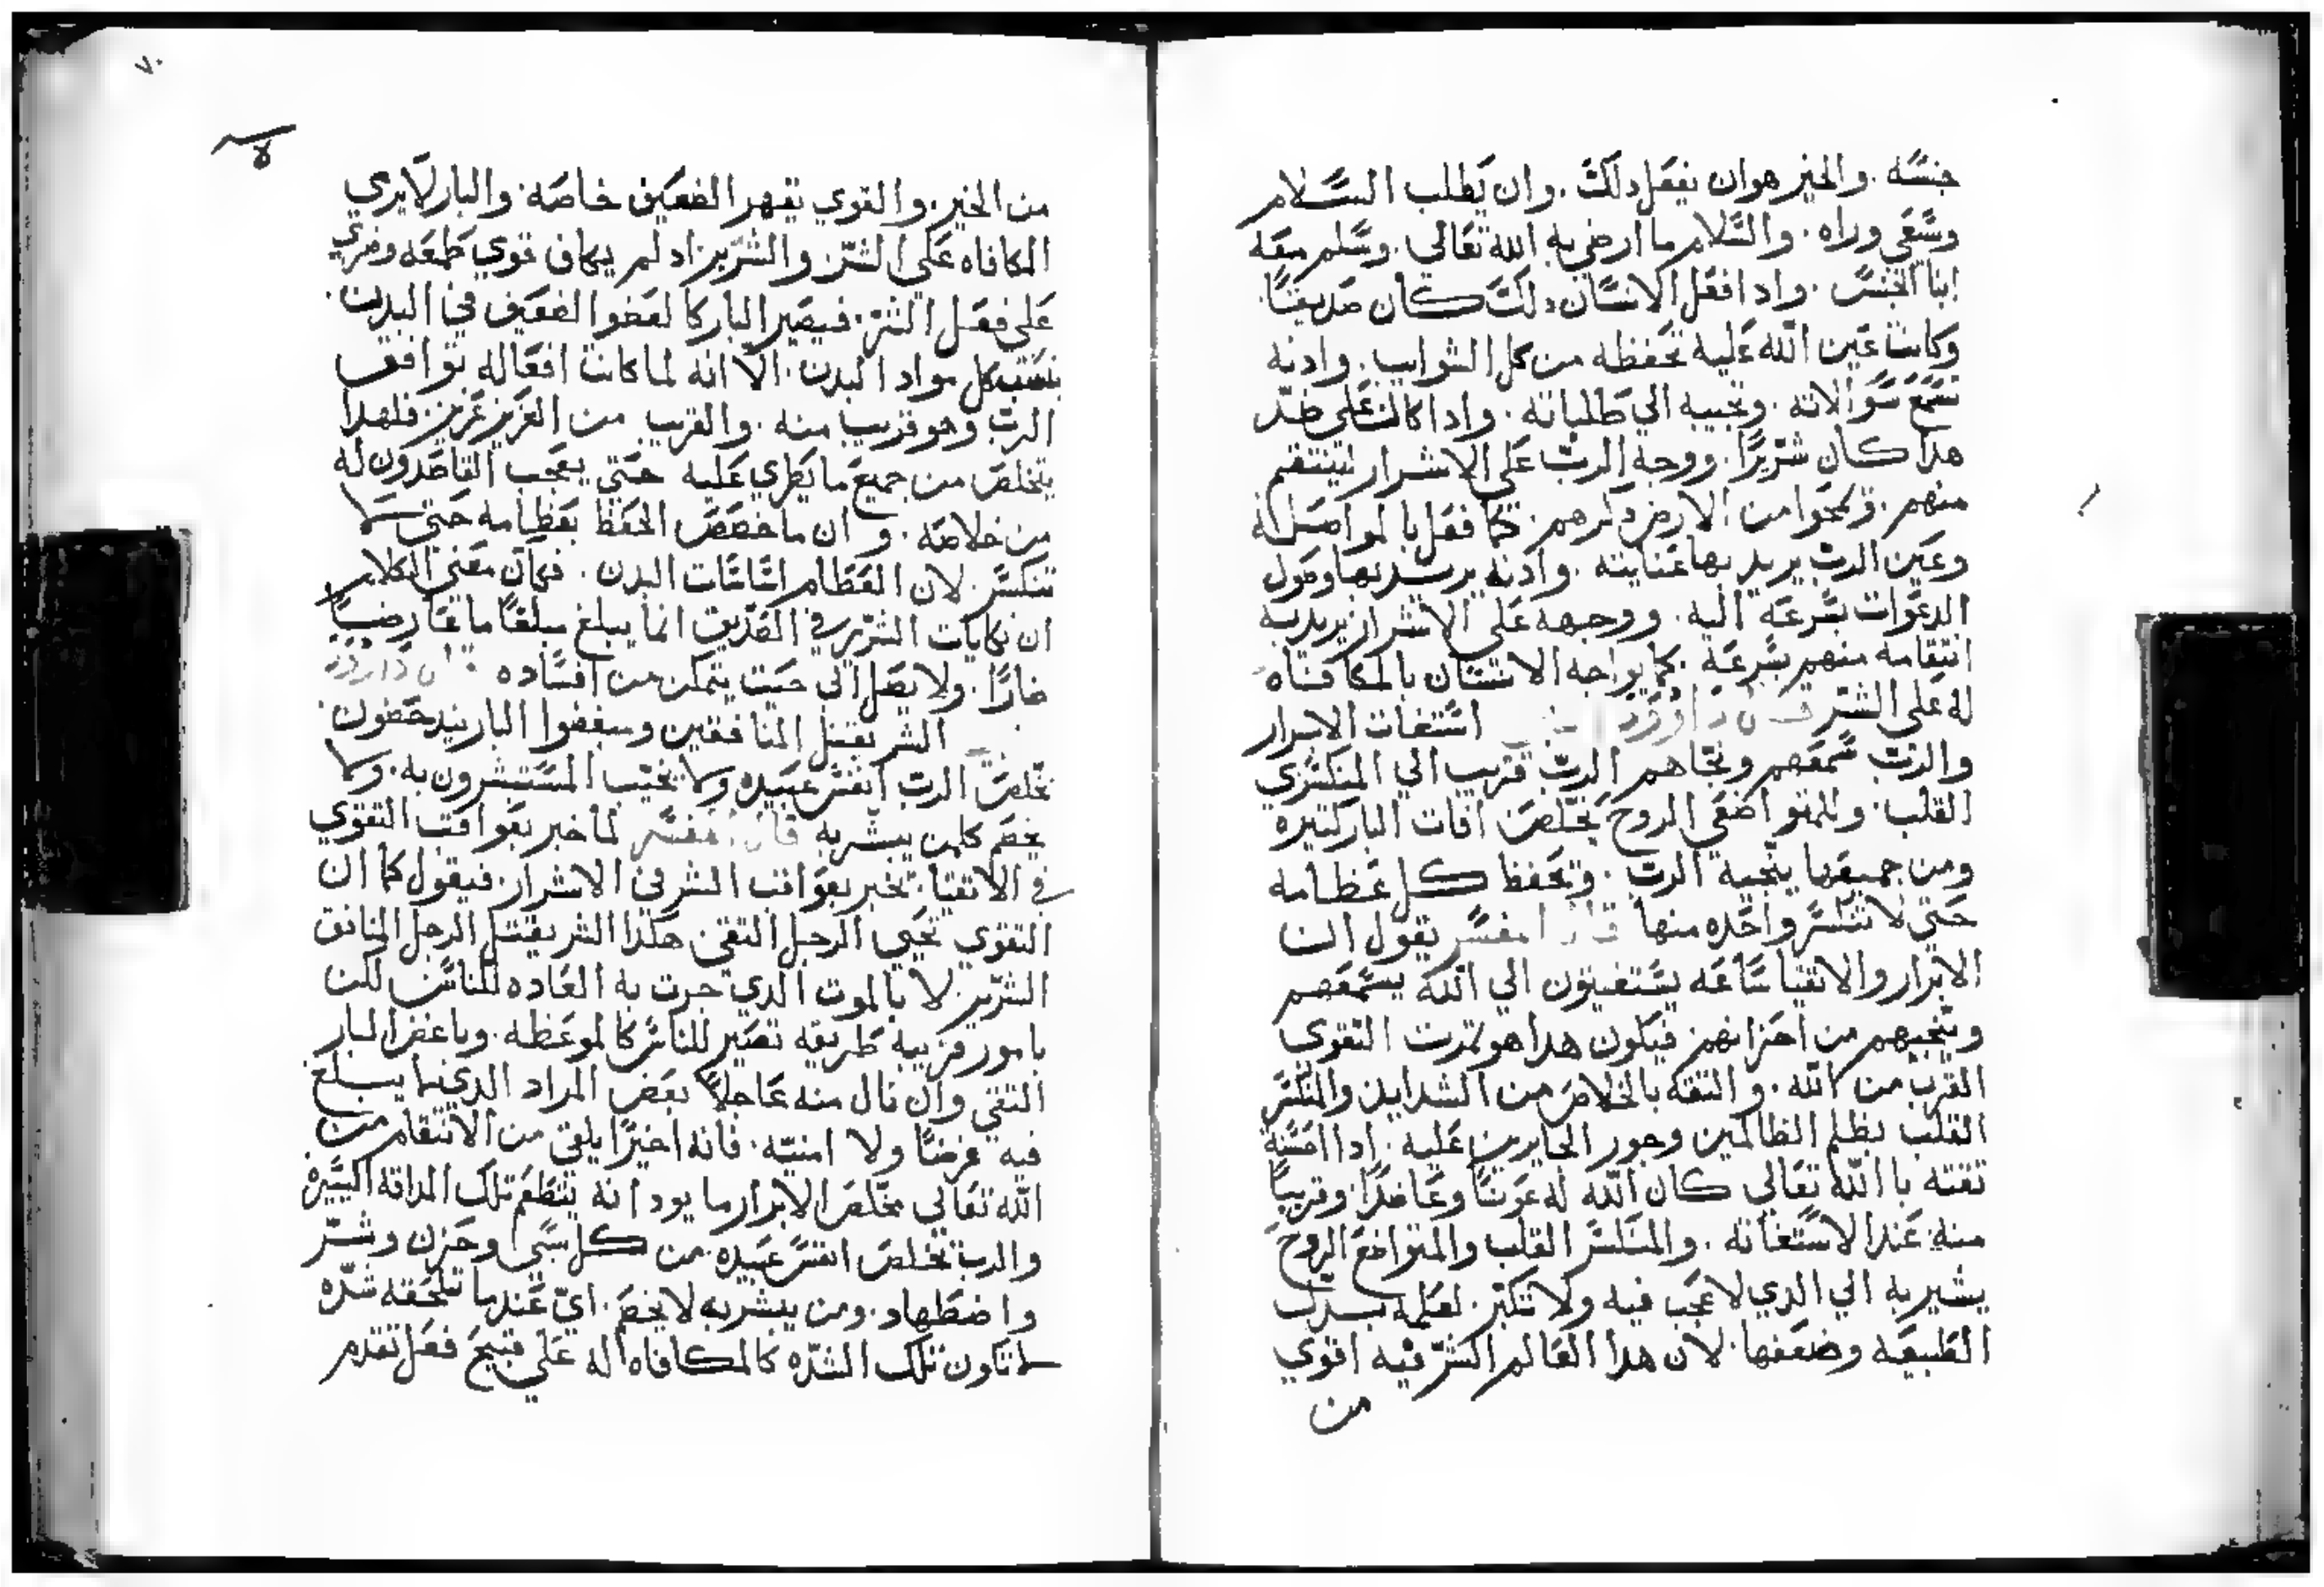 جنسه . والخير هو ان يفعل دلك . وان يطلب السلام
وسعى وراه . والسلام ما ارضي به الله تعالى . وسلم معه
ابنا الجنس . وادا فعل الانسان دلك كان صديقا
وكانت عين الله عليه تحفظه من كل الشوايب . وادنه
تسمع سوالاته . وتجيبه الي طلباته . وادا كان على ضد
هدا كان شريرا . ووجه الرب على الاشرار لينتقم
منهم . ويمحوا من الارض دكرهم . كما فعل بالموا
وعين الرب يريد بها عنايته . وادنه يريد بها وصول
الدعوات بسرعه اليه . ووجهه على الاشرار يريد به
انتقامه منهم بسرعه . كما يواجه الانسان بالمكافاه
له على الشر قال داوود استغات الابرار
والرب سمعهم ونجاهم الرب قريب الي المنكسري
القلب . والمتواضعي الروح يخلص افات البار كتيره
ومن جميعها ينجيه الرب . ويحفظ كل عظامه
حتي لا تنكسر واحده منها قال المفسر يقول ان
الابرار والاتقيا ساعه يستغيتون الي الله يسمعهم
وينجيهم من احزانهم فيكون هدا هو تمرت التقوي
القرب من الله . والتقه بالخلاص من الشدايد والمنكسر
القلب بظلم الظالمين وجور الجايرين عليه . ادا احسنة
تقته باالله تعالي كان الله له عونا وعاضدا وقريبا
منه عند الاستغاته . والمنكسر القلب والمتواضع الروح
يشير به الي الدي لا عجب فيه ولا تكبر . لعلمه بدل
الطبيعه وضعفها . لان هدا العالم الشر فيه اقوي
من
٧٠
من الخير . والقوي يقهر الضعيف خاصه . والبار لا يري
المكافاه على الشر . والشرير اد لم يكاف قوي طمعه وضري
على فعل الشر . فيصير البار كالعضوا الضعيف في البدن
كل مواد البدن . الا انه لما كانت افعاله توافق
الرب وهو قريب منه . والقريب من العزيز عزيز فلهدا
يتخلص من جميع ما يطري عليه حتي يعجب القاصدون له
من خلاصه . وان ما خصص الحفظ بعظامه حتى لا
تنكسر . لان العظام اساسات البدن . فكان معنى الكلام
ان نكايات الشرير في الصديق انما يبلغ مبلغا ما عارضيا
ضارا . ولا يصل الي حيت يتمكن من افساده قال داوود
الشر يقتل المنافقين ومبغضوا البار يندحضون
يخلص الرب انفس عبيده ولا يخيب المستبشرون به . ولا
يخصم كلمن يبشر به قال المفسر لما خبر بعواقب التقوي
في الاتقيا . يخبر بعواقب الشر في الاشرار . فيقول كما ان
التقوي تحيي الرجل التقى هكدا الشر يقتل الرجل المنافق
الشرير . لا بالموت الدي جرت به العاده للناس لكن
بامور قريبه طريقه تصير للناس كالموعظه . وباغض البار
التقي وان نال منه عاجلا بعض المراد الدي ما يبلغ
فيه غرضا ولا امنيه . فانه اخيرا يلقى من الانتقام من
الله تعالي مخلص الابرار ما يود انه يتطعم تلك المداقه اليسيره
والرب يخلص انفس عبيده من كل سبي وحزن وشر
واضطهاد . ومن يبشر به لا يخصم . اي عندما تلحقه شده
لا تكون تلك الشده كالمكافاه له على قبيح فعل تقدم